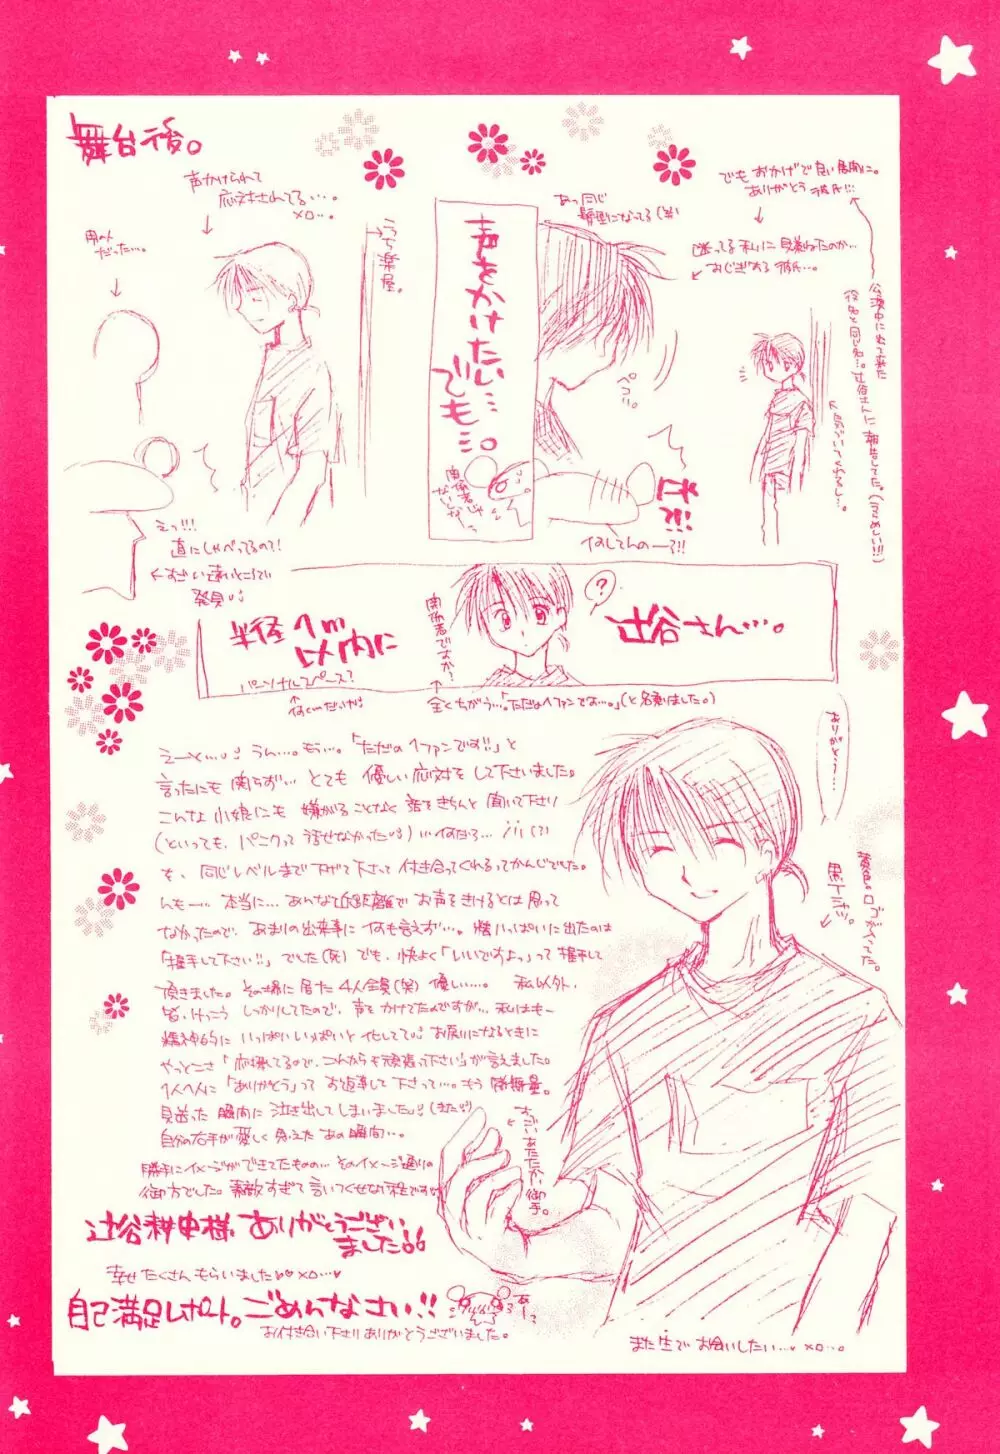 舞台後。
声かけられて
応対されてる…。
×□…。
男の人
だった…。
うち楽屋。
声をかけたい…
でも…。
関係者じゃ
ないしなーっ
あっ同じ
髪型になってる(笑)
ペコッ。
なにしてんのーっ?!!
でもおかげで良い展開に。
ありがとう彼氏!!!
迷ってる私に見かねたのか…
おじぎする彼氏…。
公演中にねて来た
役名と同じ名…。辻谷さんに報告してた。(うらめしい!!)
えっ!!!
直にしゃべってるので!
すごい遠いところで
発見
半径1m
以内に
パーソナルスペース?
関係者ですか?
?
辻谷さん…。
全くちがう…。「ただの1ファンです…。」(と名乗りました。)
えーと…。うん…。もぅ…。「ただの1ファンです!!」と
言ったにも関らず…とても優しい応対をして下さいました。
こんな小娘にも嫌がることなく話をきちんと聞いて下さり
(といっても、パニクって話せなかった)…何だろ…
も、同じレベルまで下げて下さって付き合ってくれるってかんじでした。
んもー…本当に…あんな近距離でお声をきけるとは思って
なかったので、あまりの出来事に何も言えず…。精いっぱいに出たのは
「握手して下さい!!」でした(死)でも、快よく「いいですよ。」って握手して
頂きました。その場に居た4人全員(笑)優しい…。私以外、
皆、けっこうしっかりしてたので、声をかけてたのですが…私はもー
精神的にいっぱいいっぱいと化してて。お戻りになるときに
やっとこさ「応援してるので、これからも頑張って下さい」が言えました。
1人1人に「ありがとう」ってお返事して下さって…。もう感無量。
見送った瞬間に泣き出してしまいました!!(また!?)
自分の右手が愛しく見えたあの瞬間…。
勝手にイメージができてたものの…そのイメージ通りの
御方でした。素敵すぎて言いつくせない程です
辻谷耕史様、ありがとうござい
ました。
幸せたくさんもらいました♥×□…♥
自己満足レポート。ごめんなさい!!
お付き合い下さりありがとうございました。
ありがとう…
黒Tシャツ。
すごいあたたかい御手。
また生でお会いしたい…♥×□…。